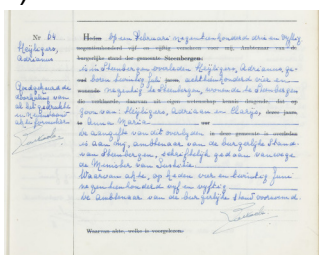 Nr 64
Heijligers,
Adrianus
Heden op een Februari negentienhonderd drie en vijftig
negentienhonderd vijf en vijftig verscheen voor mij, Ambtenaar van de
burgerlijke stand der gemeente Steenbergen:
is in Steenbergen overleden Heijligers, Adrianus, ge-
oud boren twintig Juli jaren, achttienhonderd vier en
wonende negentig te Steenbergen, wonende te Steenbergen
die verklaarde, daarvan uit eigen wetenschap kennis dragende, dat op
zoon van: Heijligers, Adriaan en
Anna Maria uur
de aangifte van dit overlijden in deze gemeente is overleden
is aan mij, ambtenaar van de burgerlijke stand
van Steenbergen, schriftelijk gedaan vanwege
de Minister van Justitie.
Waarvan akte, op heden vier en twintig Juni
negentienhonderd vijf en vijftig
De ambtenaar van de burgerlijke stand voornoemd.
Goedgekeurd de
doorhaling van
de
Waarvan akte, welke is voorgelezen.